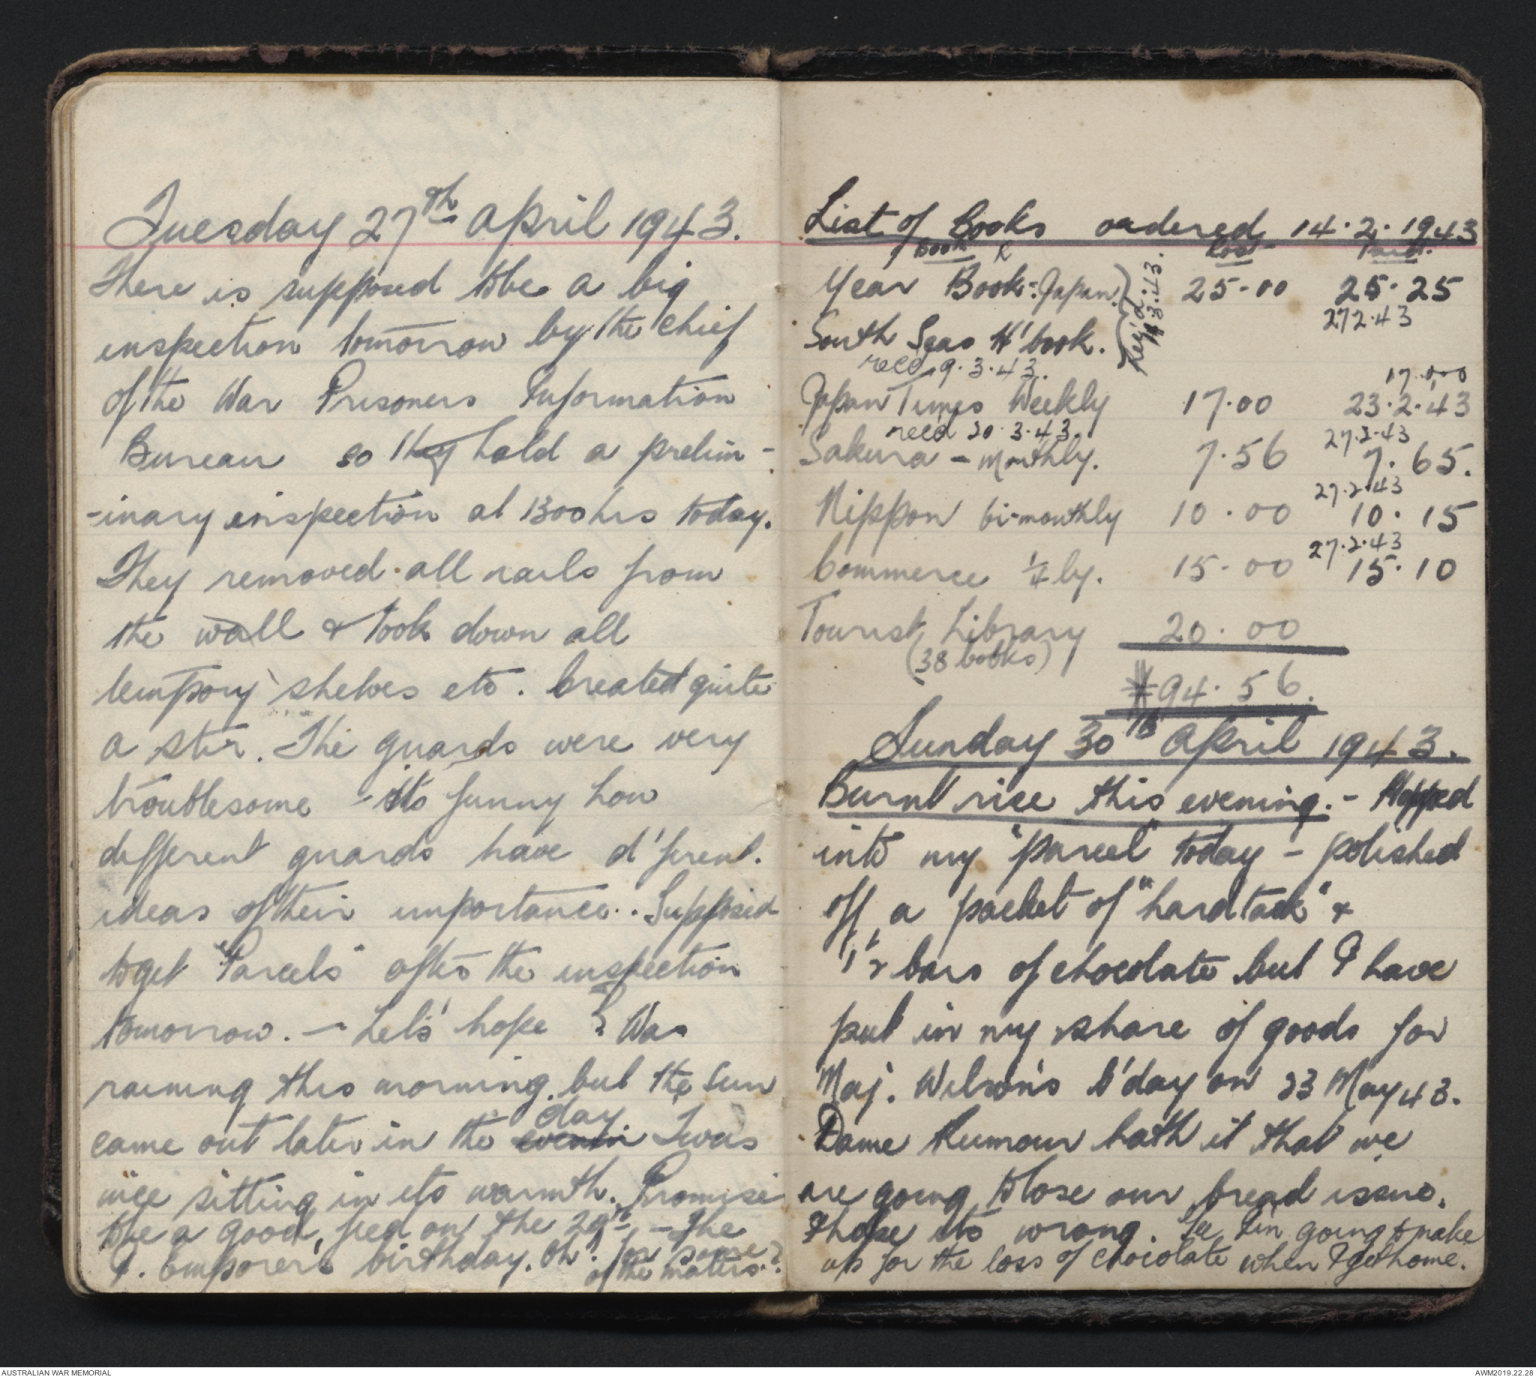 Tuesday 27th April 1943.
There is supposed to be a big
inspection tomorrow by the chief
of the War Prisoners Information
Bureau so they hold a prelim-
-inary inspection at 1300 hrs today.
They removed all nails from
the wall & took down all
tempory shelves etc. Created quite
a stir. The guards were very
troublesome - its funny how
different guards have d'ferent.
ideas of their importance.. Supposed
to get "Parcels" after the inspection
tomorrow. - Let's hope ? Was
raining this morning, but the sun
day
came out later in the evenin Twas
nice sitting in its warmth. Promise
to be a good feed on the 29th, - The
I. Emporer's birthday. Oh! for some
of the maters.?
List of Books ordered 14.2.1943
Book Cost Paid.
Year Book: Japan. 25.00 25.25
27 2.43
South Seas H'book.
Rec'd 13.3.43.
recd 9.3.43. 17.00
Japan Times Weekly 17.00 23.2.43
recd 20.3.43. 27.2.43
Sakura - monthly. 7.56 7.65.
27.2.43
Nippon bi-monthly 10.00 10.15
27.2.43
Commerce 1/4ly. 15.00 15.10
Tourist Library 20.00
(38 books)
94.56.
Sunday 30th April 1943.
Burnt rice this evening. - Hopped
into my "parcel" today - polished
off a packet of "hard tack" &
1 1/2 bars of chocolate but I have
put in my share of goods for
Maj. Wilson's b'day on 23 May 43.
Dame Rumour hath it that we
are going to lose our bread issue.
I hope its wrong. Ge I'm going to make
up for the loss of chocolate when I get home.
AUSTRALIAN WAR MEMORIAL
AWM2019.22.28